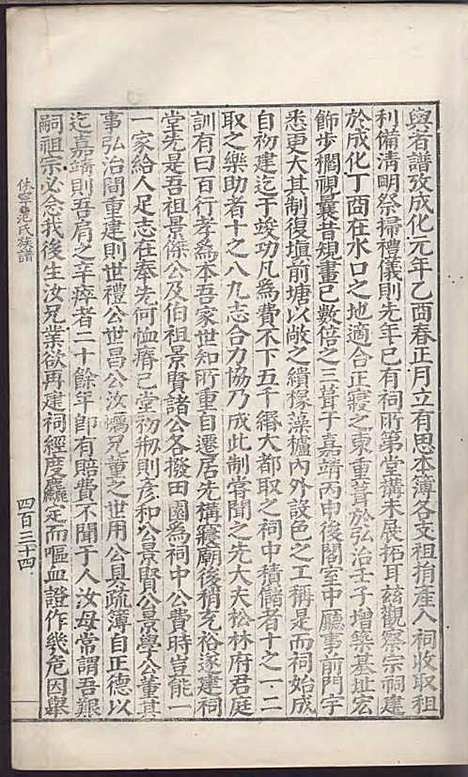 與者譜攷成化元年乙酉春正月立有思本簿各支祖捐產入祠收取租
利備清明祭掃禮儀則先年已有祠所第堂搆未展拓耳茲觀察宗祠建
於成化丁酉在水口之地適合正寢之東重葺於弘治壬子增築基址宏
飾步櫚視曩昔規畫已數倍之三葺于嘉靖丙申後閣至中廳事前門宇
悉更大其制復塡前塘以敞之繢椽藻櫨內外設色之工稱是而祠始成
自初建迄于竣功凡為費不下五千緡大都取之祠中積儲者十之一二
取之樂助者十之八九志合力協乃成此制嘗聞之先大夫松林府君庭
訓有曰百行孝為本吾家世知所重自遷居先構寢廟後稍充裕遂建祠
堂先是吾祖景傑公及伯祖景賢諸公各撥田園為祠中公費時豈能一
一家給人足志在奉先何恤瘠己堂初剏則彥和公景賢公景學公董其
事弘治閒重建則世禮公世昌公汝蠣兄董之世用公具疏簿自正德以
迄嘉靖則吾肩之辛瘁者二十餘年即有賠費不聞于人汝母常謂吾艱
嗣祖宗必念我後生汝兄業欲再建祠經度麤定而嘔血證作幾危因舉
休寧范氏族譜
四百三十四